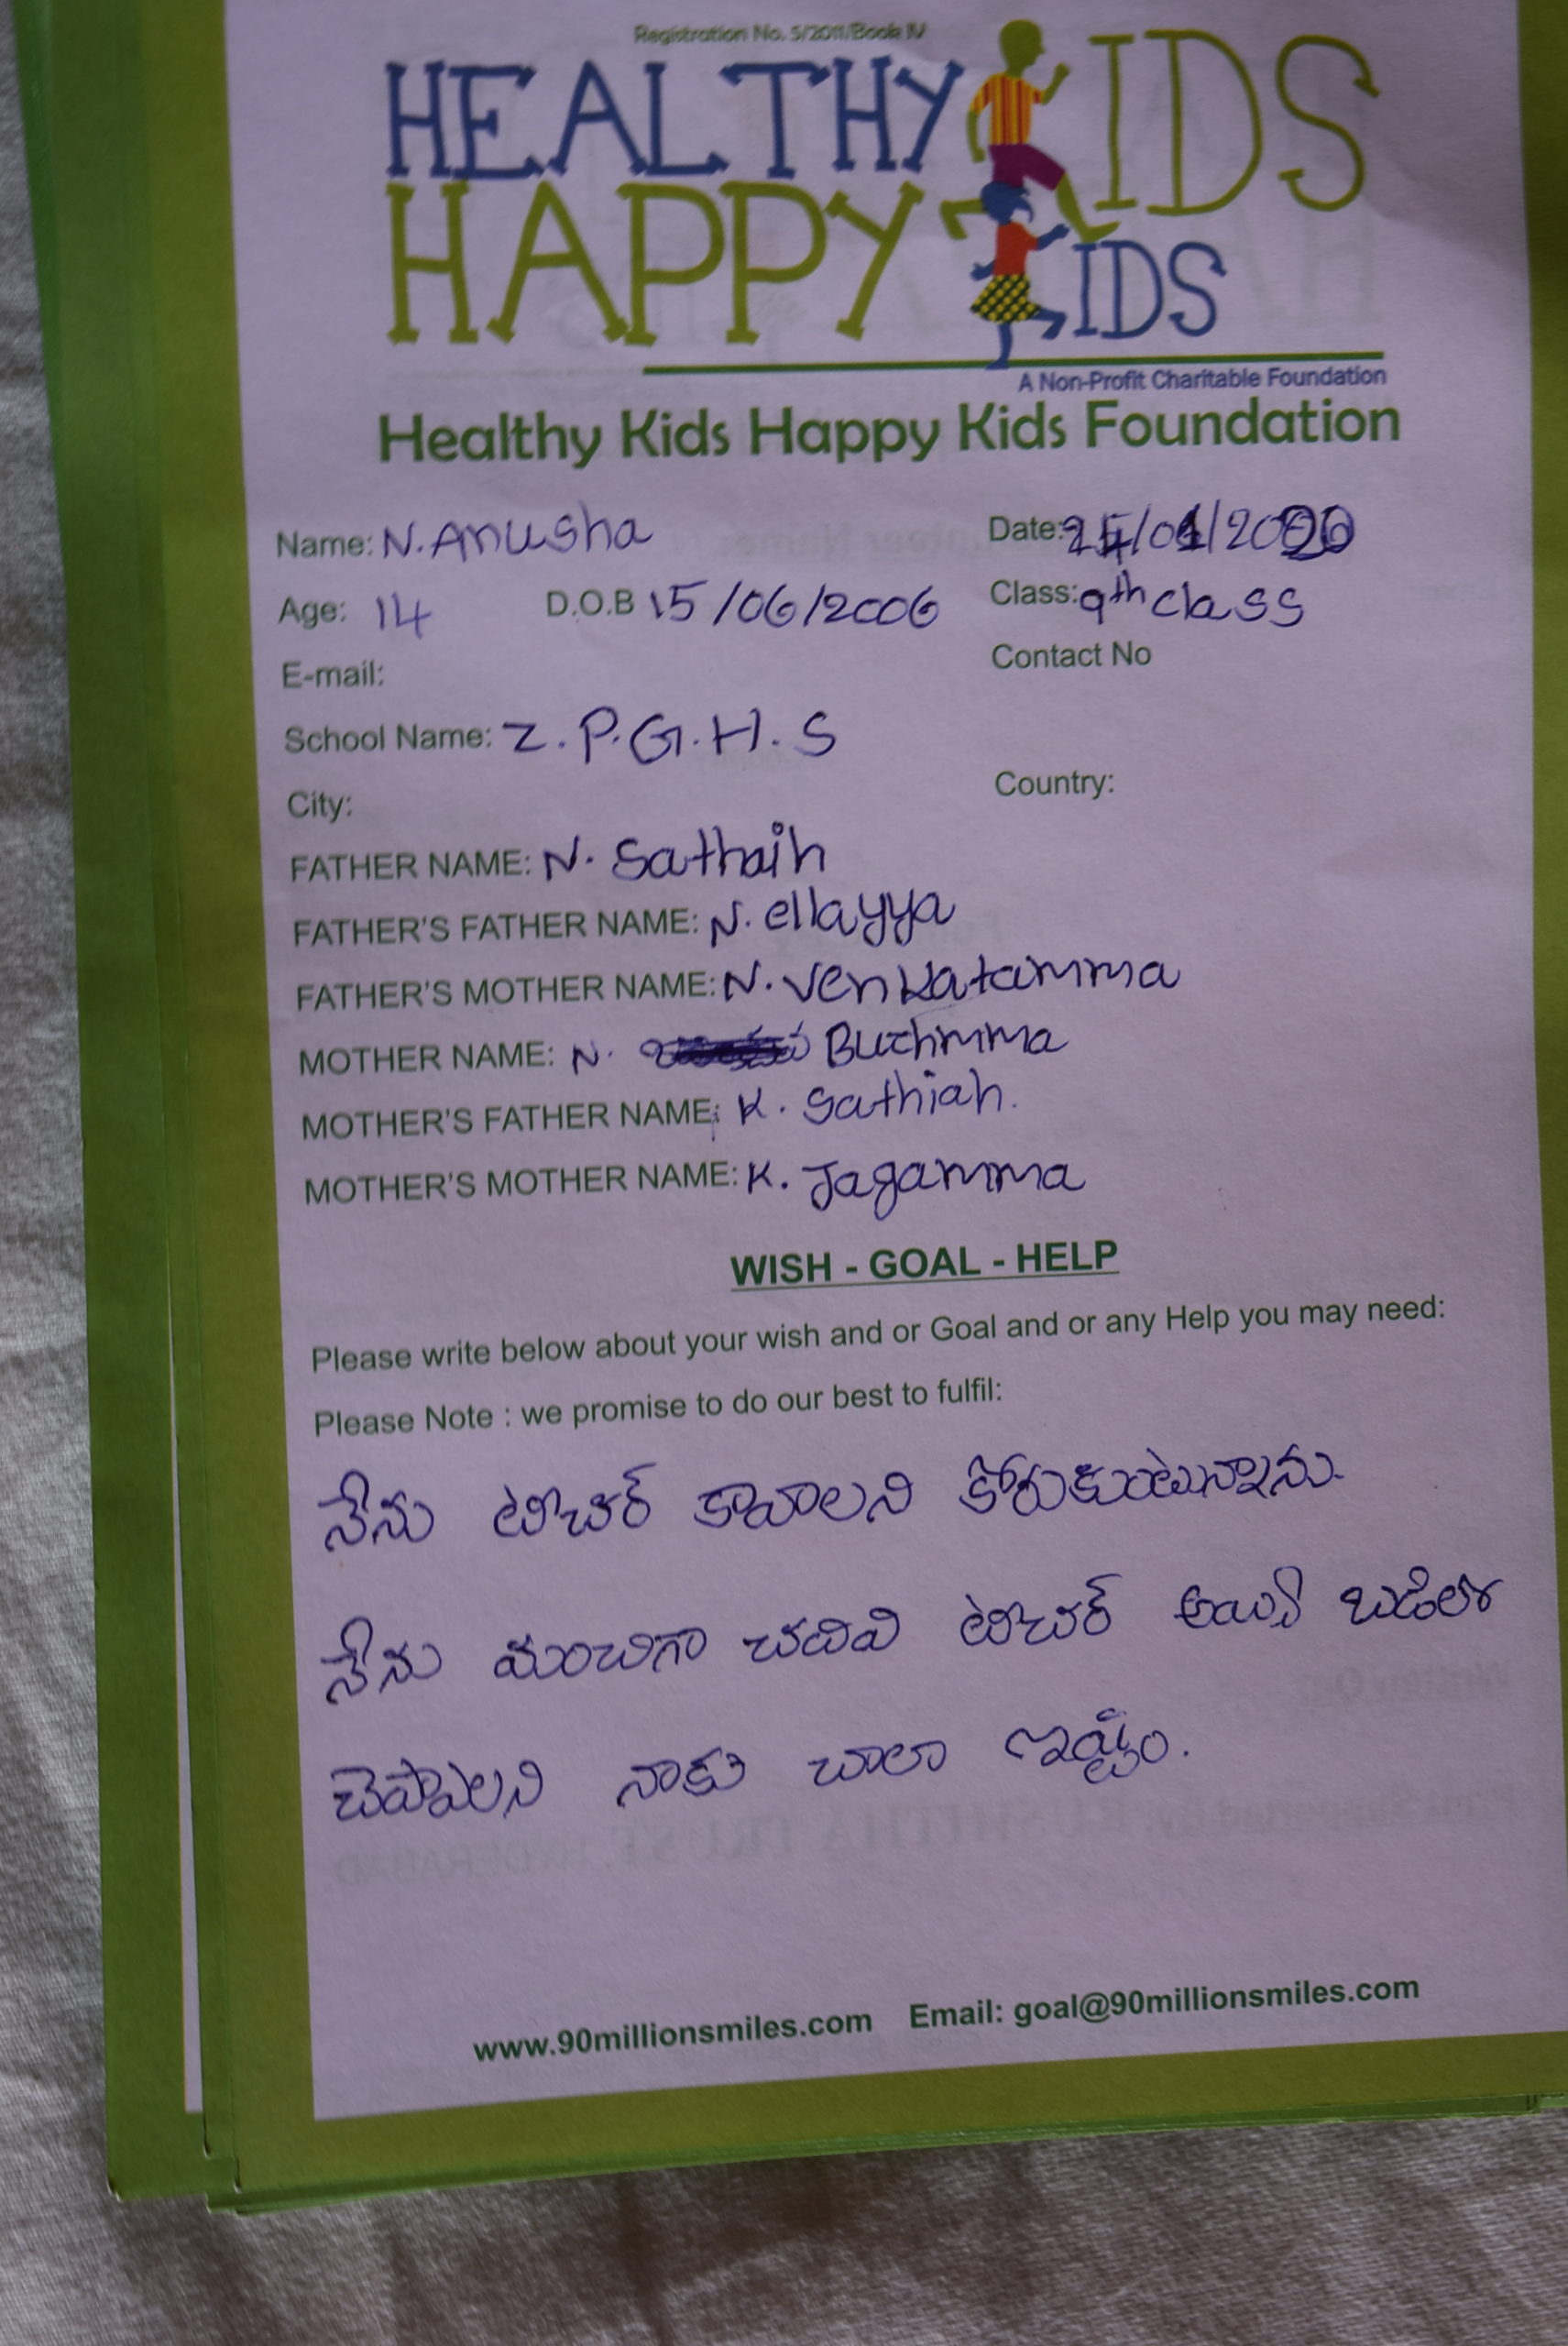 Registration No. 5/2011/Book IV
HEALTHY KIDS
HAPPY KIDS
A Non-Profit Charitable Foundation
Healthy Kids Happy Kids Foundation
Name: N. Anusha Date:
Age: 14 D.O.B 15/06/2006 Class: 9th class
E-mail: Contact No
School Name: Z.P.G.H.S
City: Country:
FATHER NAME: N. Sathaih
FATHER'S FATHER NAME: N. ellayya
FATHER'S MOTHER NAME: N. Venkatamma
MOTHER NAME: N. Buchmma
MOTHER'S FATHER NAME: K. Sathiah.
MOTHER'S MOTHER NAME: K. Jagamma
WISH - GOAL - HELP
Please write below about your wish and or Goal and or any Help you may need:
Please Note : we promise to do our best to fulfil:
నేను టీచర్ కావాలని కోరుకుంటున్నాను.
నేను మంచిగా చదివి టీచర్ అయ్యి బడిలో
చెప్పాలని నాకు చాలా ఇష్టం.
www.90millionsmiles.com Email: goal@90millionsmiles.com